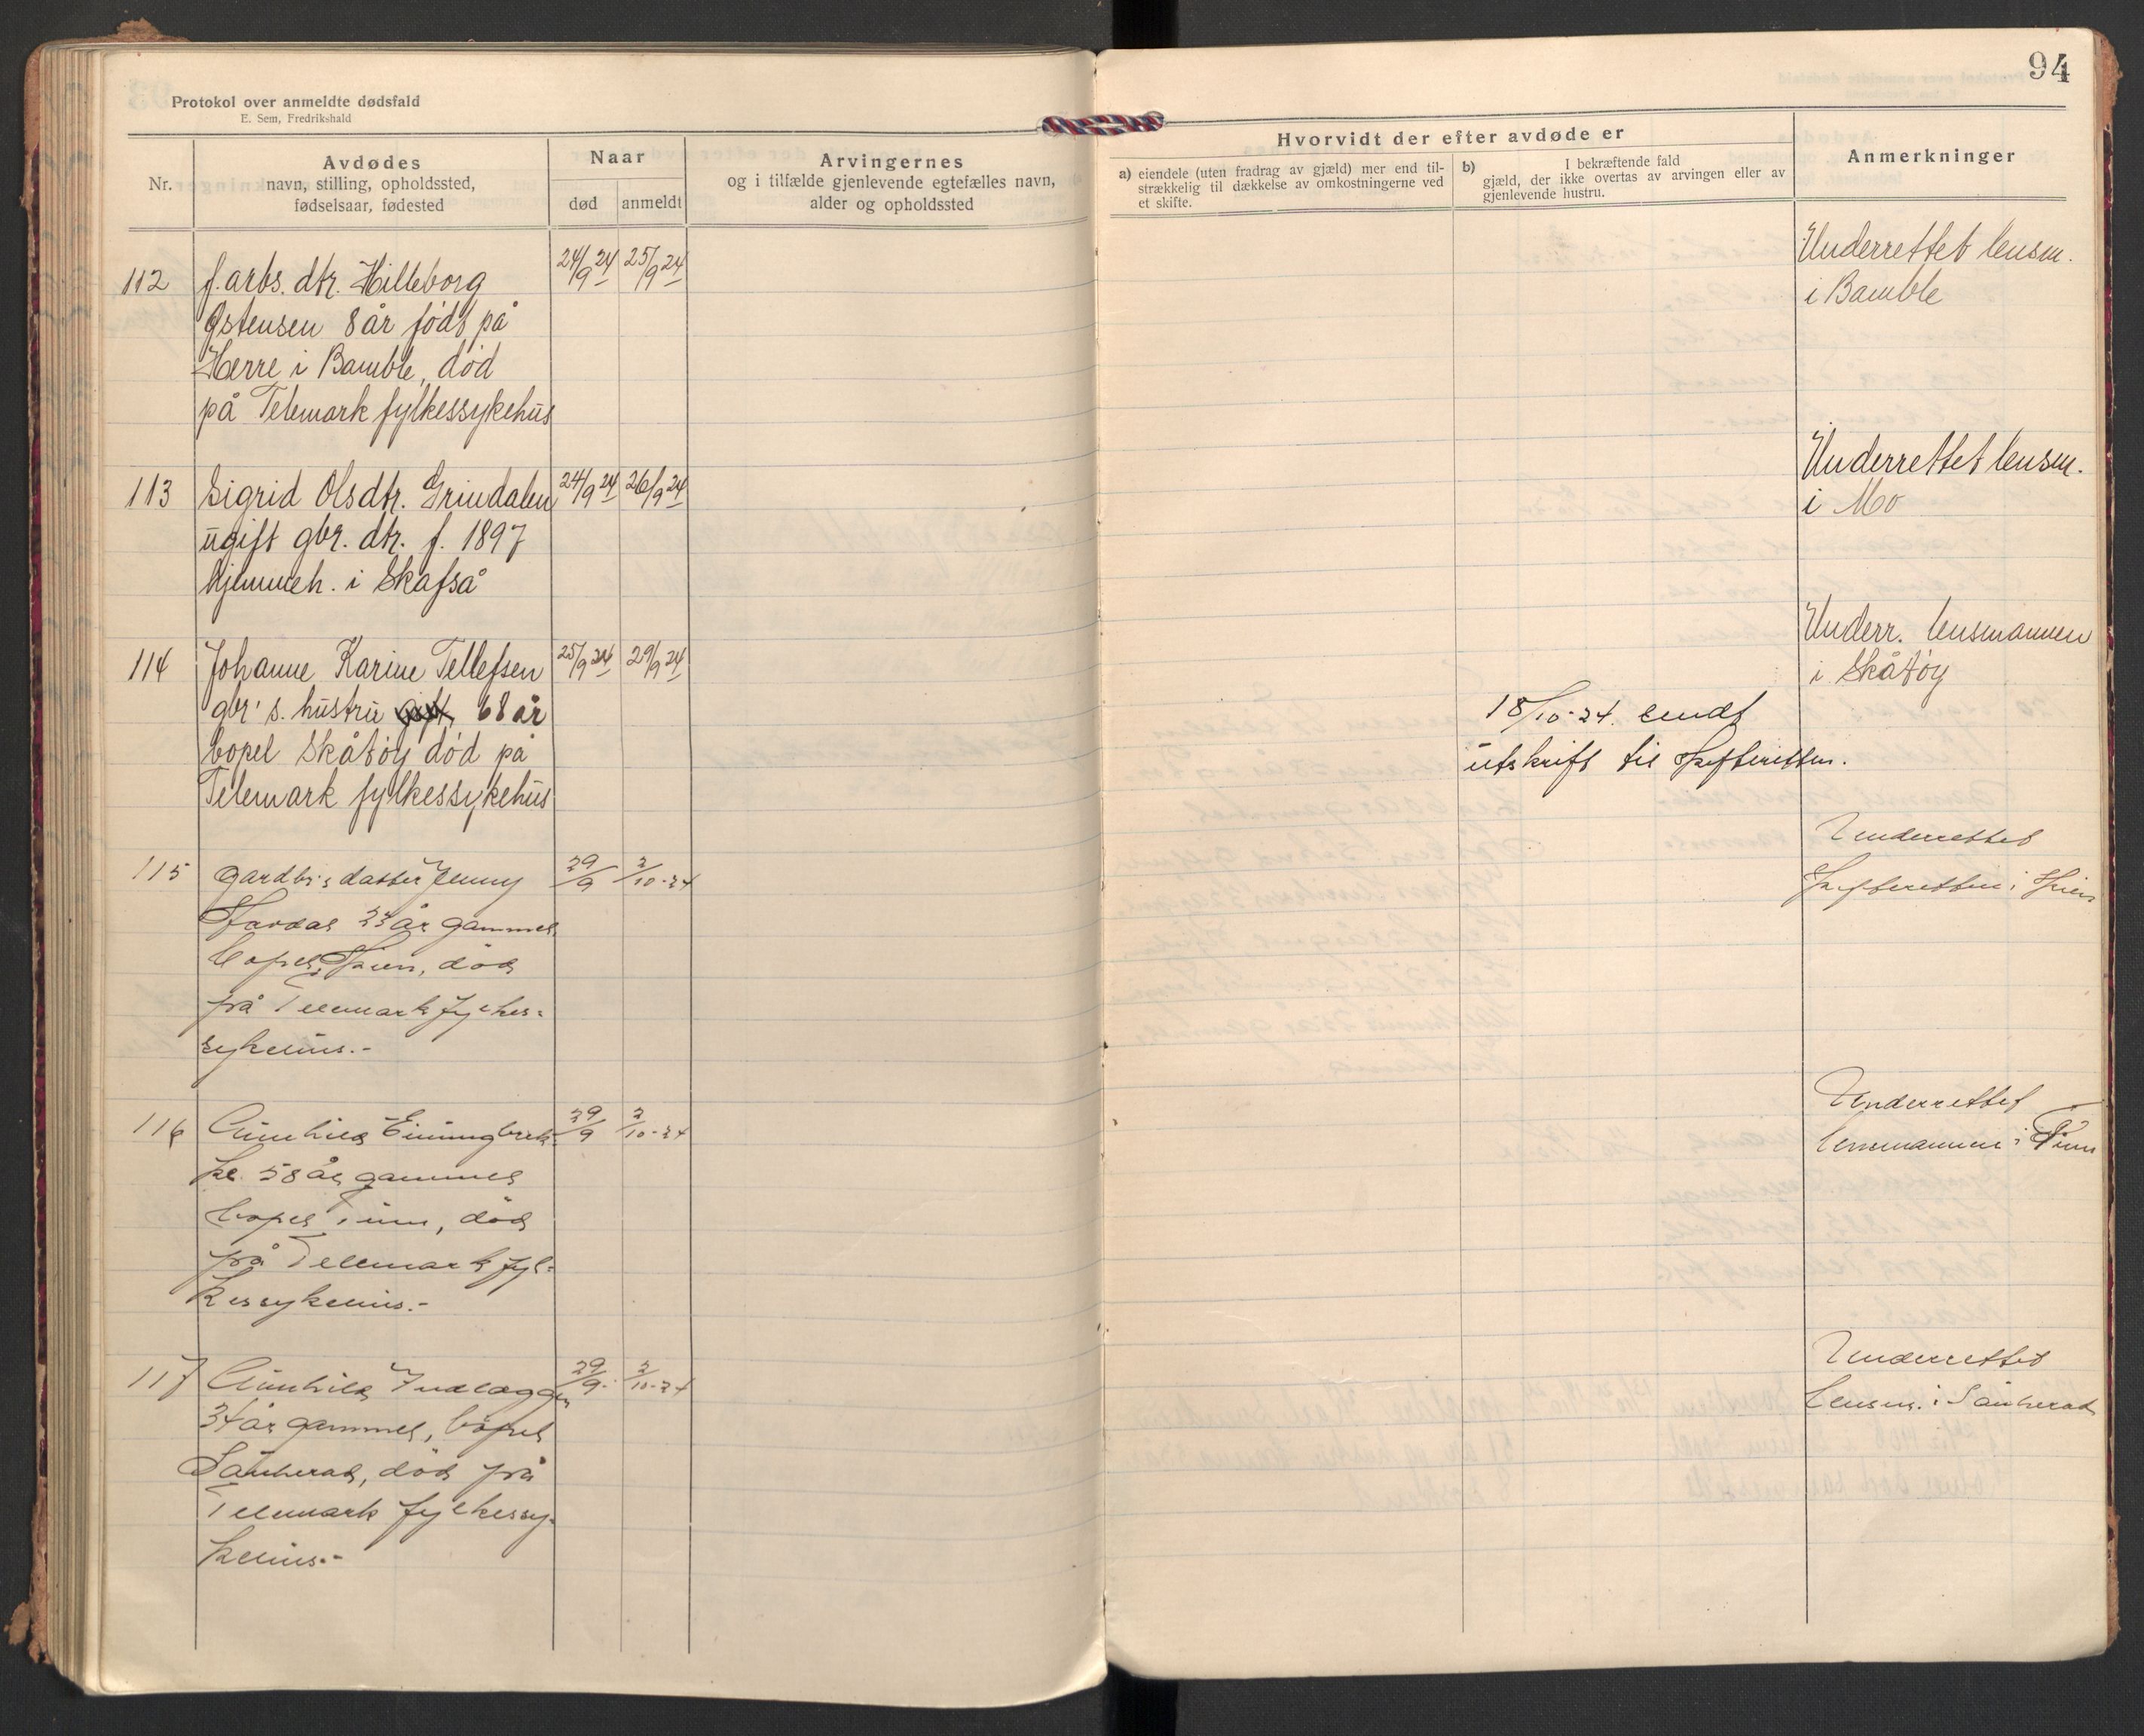 94
Protokol over anmeldte dødsfald
E. Sem, Fredrikshald
Nr.
Avdødes
navn, stilling, opholdssted,
fødselsaar, fødested
Naar
død
anmeldt
Arvingernes
og i tilfælde gjenlevende egtefælles navn,
alder og opholdssted
Hvorvidt der efter avdøde er
a) eiendele (uten fradrag av gjæld) mer end til-
strækkelig til dækkelse av omkostningerne ved
et skifte.
b) I bekræftende fald
gjæld, der ikke overtas av arvingen eller av
gjenlevende hustru.
Anmerkninger
112 f. arbs. dtr. Hilleborg 24/9 24 25/9 24
Ostensen 8 år født på
Herre i Bamble, død
på Telemark fylkessykehus
Underrettet lensm.
i Bamble
113 Sigrid Olsdtr. Grindalen 24/9 24 26/9 24
ugift gbr. dtr. f. 1897
hjemmeh. i Skafså
Underrettet lensm.
i Mo
114 Johanne Karine Tellefsen 25/9 24 29/9 24
gbr's. hustru 68 år
bopel Skåtøy død på
Telemark fylkessykehus
18/10-24. sendt
utskrift til Skifteretten.
Underr. lensmannen
i Skåtøy
115 gardbr.s datter Jenny 29/9 2/10-24
23 år gammel
bopel Skien, død
på Telemark fylkes-
sykehus.-
Underrettet
Skifteretten i Skien
116 Gunhild 29/9 2/10-24
58 år gammel
bopel Tinn, død
på Telemark fyl-
kessykehus.-
Underrettet
lensmannen i Tinn
117 Gunhild 29/9- 2/10-24
34 år gammel, bopel
Sauherad, død på
Telemark fylkessy-
kehus.-
Underrettet
lensm. i Sauherad